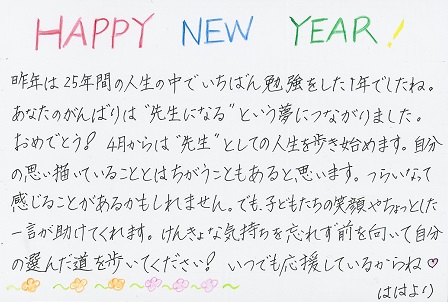 HAPPY NEW YEAR!
昨年は25年間の人生の中でいちばん勉強をした1年でしたね。
あなたのがんばりは"先生になる"という夢につながりました。
おめでとう! 4月からは"先生"としての人生を歩き始めます。自分
の思い描いていることとはちがうこともあると思います。つらいなって
感じることがあるかもしれません。でも、子どもたちの笑顔やちょっとした
一言が助けてくれます。けんきょな気持ちを忘れず前を向いて自分
の選んだ道を歩いてください! いつでも応援しているからね♡
ははより